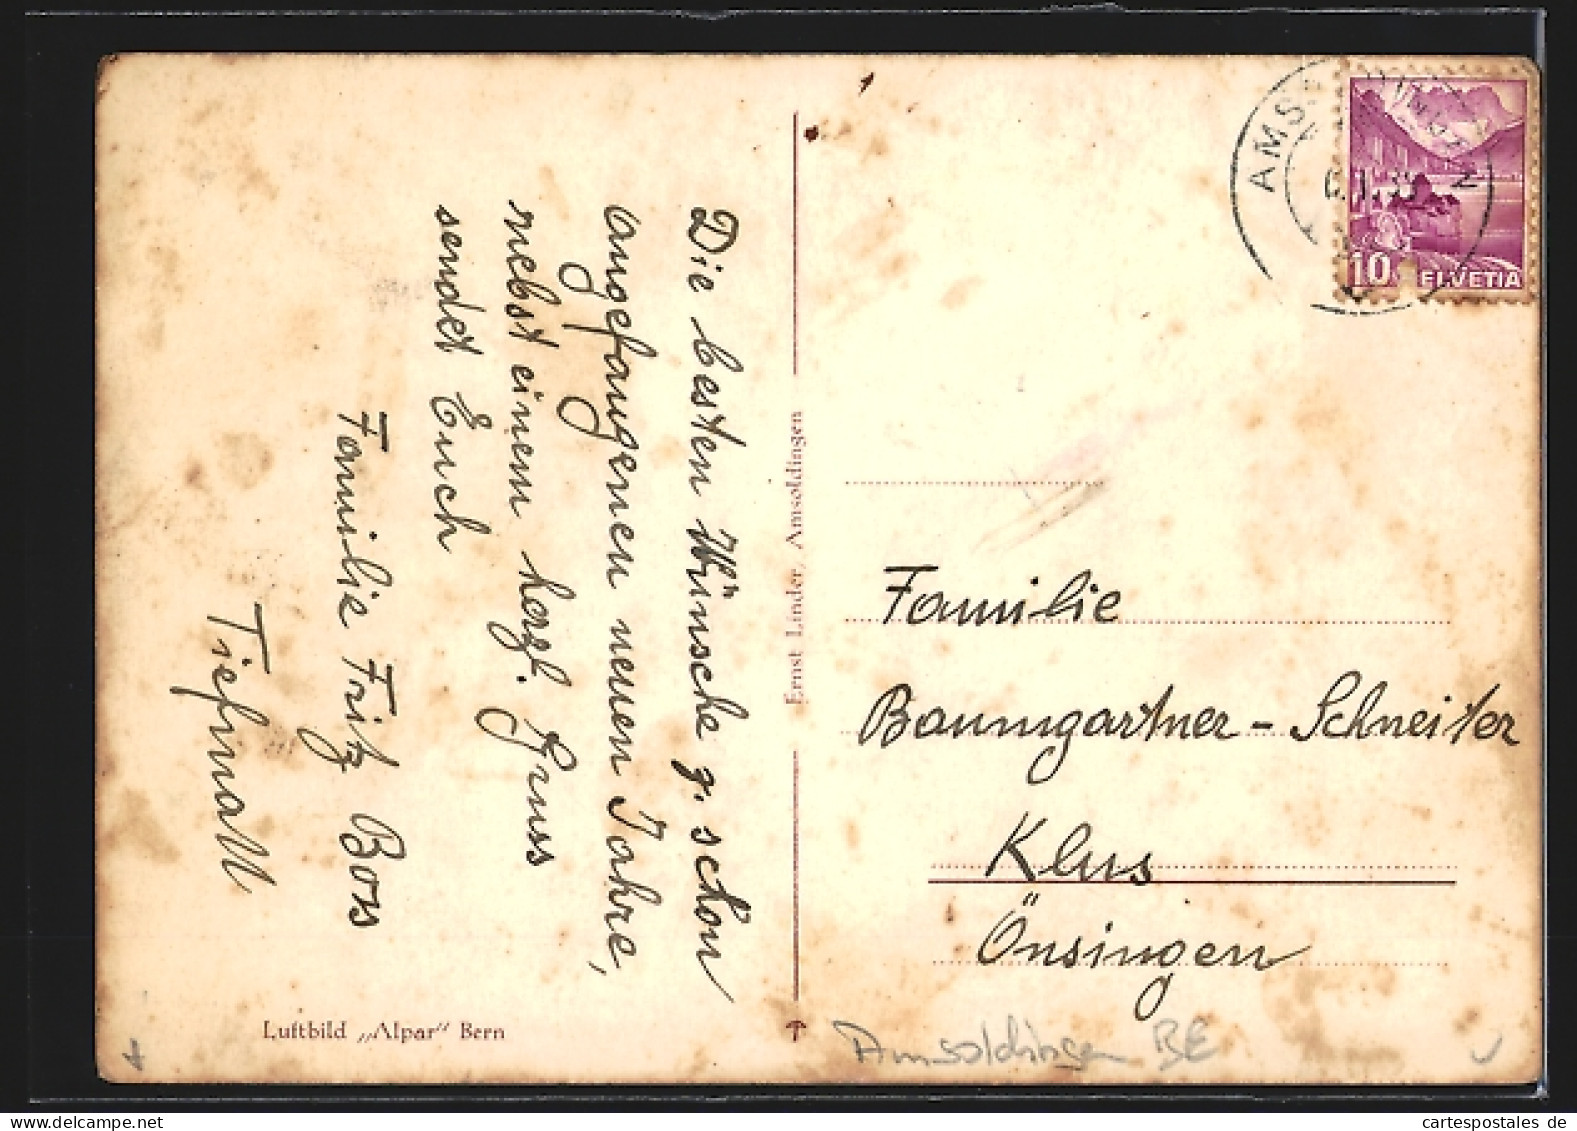 Die besten Wünsche z. schon
angefangenen neuen Jahre,
nebst einem herzl. Gruss
sendet Euch
Familie Fritz Boss
Tiefmatt
Luftbild „Alpar“ Bern
Ernst Linder, Amsoldingen
AMSOLDINGEN
10
HELVETIA
Familie
Baumgartner-Schneiter
Klus
Önsingen
Amsoldingen BE
www.cartespostales.de